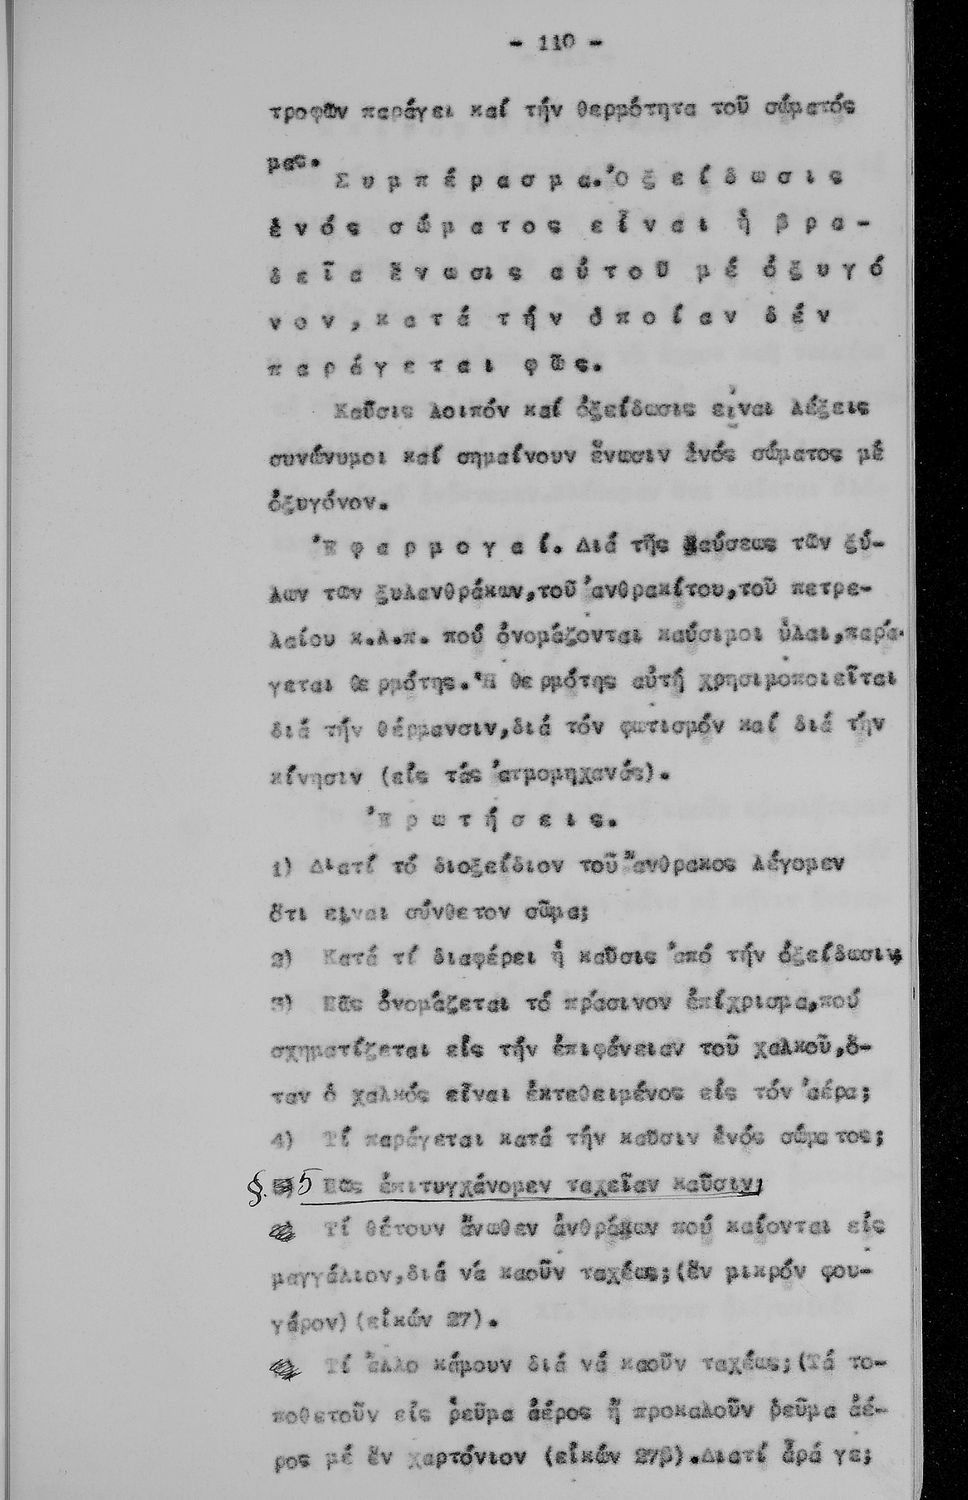 - 110 -
τροφῶν παράγει καί τήν θερμότητα τοῦ σώματός
μας.
Συμπέρασμα. Ὀξείδωσις
ἑνός σώματος εἶναι ἡ βρα-
δεῖα ἕνωσις αὐτοῦ μέ ὀξυγό
νον, κατά τήν ὁποίαν δέν
παράγεται φῶς.
Καῦσις λοιπόν καί ὀξείδωσις εἶναι λέξεις
συνώνυμοι καί σημαίνουν ἕνωσιν ἑνός σώματος μέ
ὀξυγόνον.
Ἐφαρμογαί. Διά τῆς καύσεως τῶν ξύ-
λων τῶν ξυλανθράκων, τοῦ ἀνθρακίτου, τοῦ πετρε-
λαίου κ.λ.π. πού ὀνομάζονται καύσιμοι ὗλαι, παρά-
γεται θερμότης. Ἡ θερμότης αὐτή χρησιμοποιεῖται
διά τήν θέρμανσιν, διά τόν φωτισμόν καί διά τήν
κίνησιν (εἰς τάς ἀτμομηχανάς).
Ἐρωτήσεις.
1) Διατί τό διοξείδιον τοῦ ἄνθρακος λέγομεν
ὅτι εἶναι σύνθετον σῶμα;
2) Κατά τί διαφέρει ἡ καῦσις ἀπό τήν ὀξείδωσιν;
3) Πῶς ὀνομάζεται τό πράσινον ἐπίχρισμα, πού
σχηματίζεται εἰς τήν ἐπιφάνειαν τοῦ χαλκοῦ, ὅ-
ταν ὁ χαλκός εἶναι ἐκτεθειμένος εἰς τόν ἀέρα;
4) Τί παράγεται κατά τήν καῦσιν ἑνός σώματος;
§. 5 Πῶς ἐπιτυγχάνομεν ταχεῖαν καῦσιν;
Τί θέτουν ἄνωθεν ἀνθράκων πού καίονται εἰς
μαγγάλιον, διά νά καοῦν ταχέως; (ἕν μικρόν φου-
γάρον) (εἰκών 27).
Τί ἄλλο κάμουν διά νά καοῦν ταχέως; (Τά το-
ποθετοῦν εἰς ῥεῦμα ἀέρος ἤ προκαλοῦν ῥεῦμα ἀέ-
ρος μέ ἕν χαρτόνιον (εἰκών 27β). Διατί ἆρά γε;